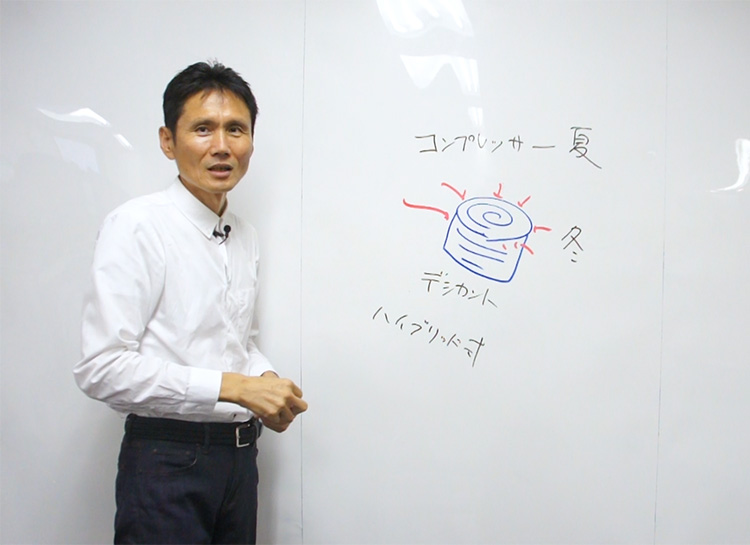 コンプレッサー 夏
冬
デシカント
ハイブリッド式